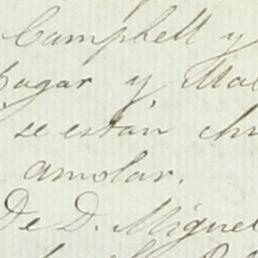 Campbell y
pagar y Mal
se están chi
amolar.
De D. Miguel